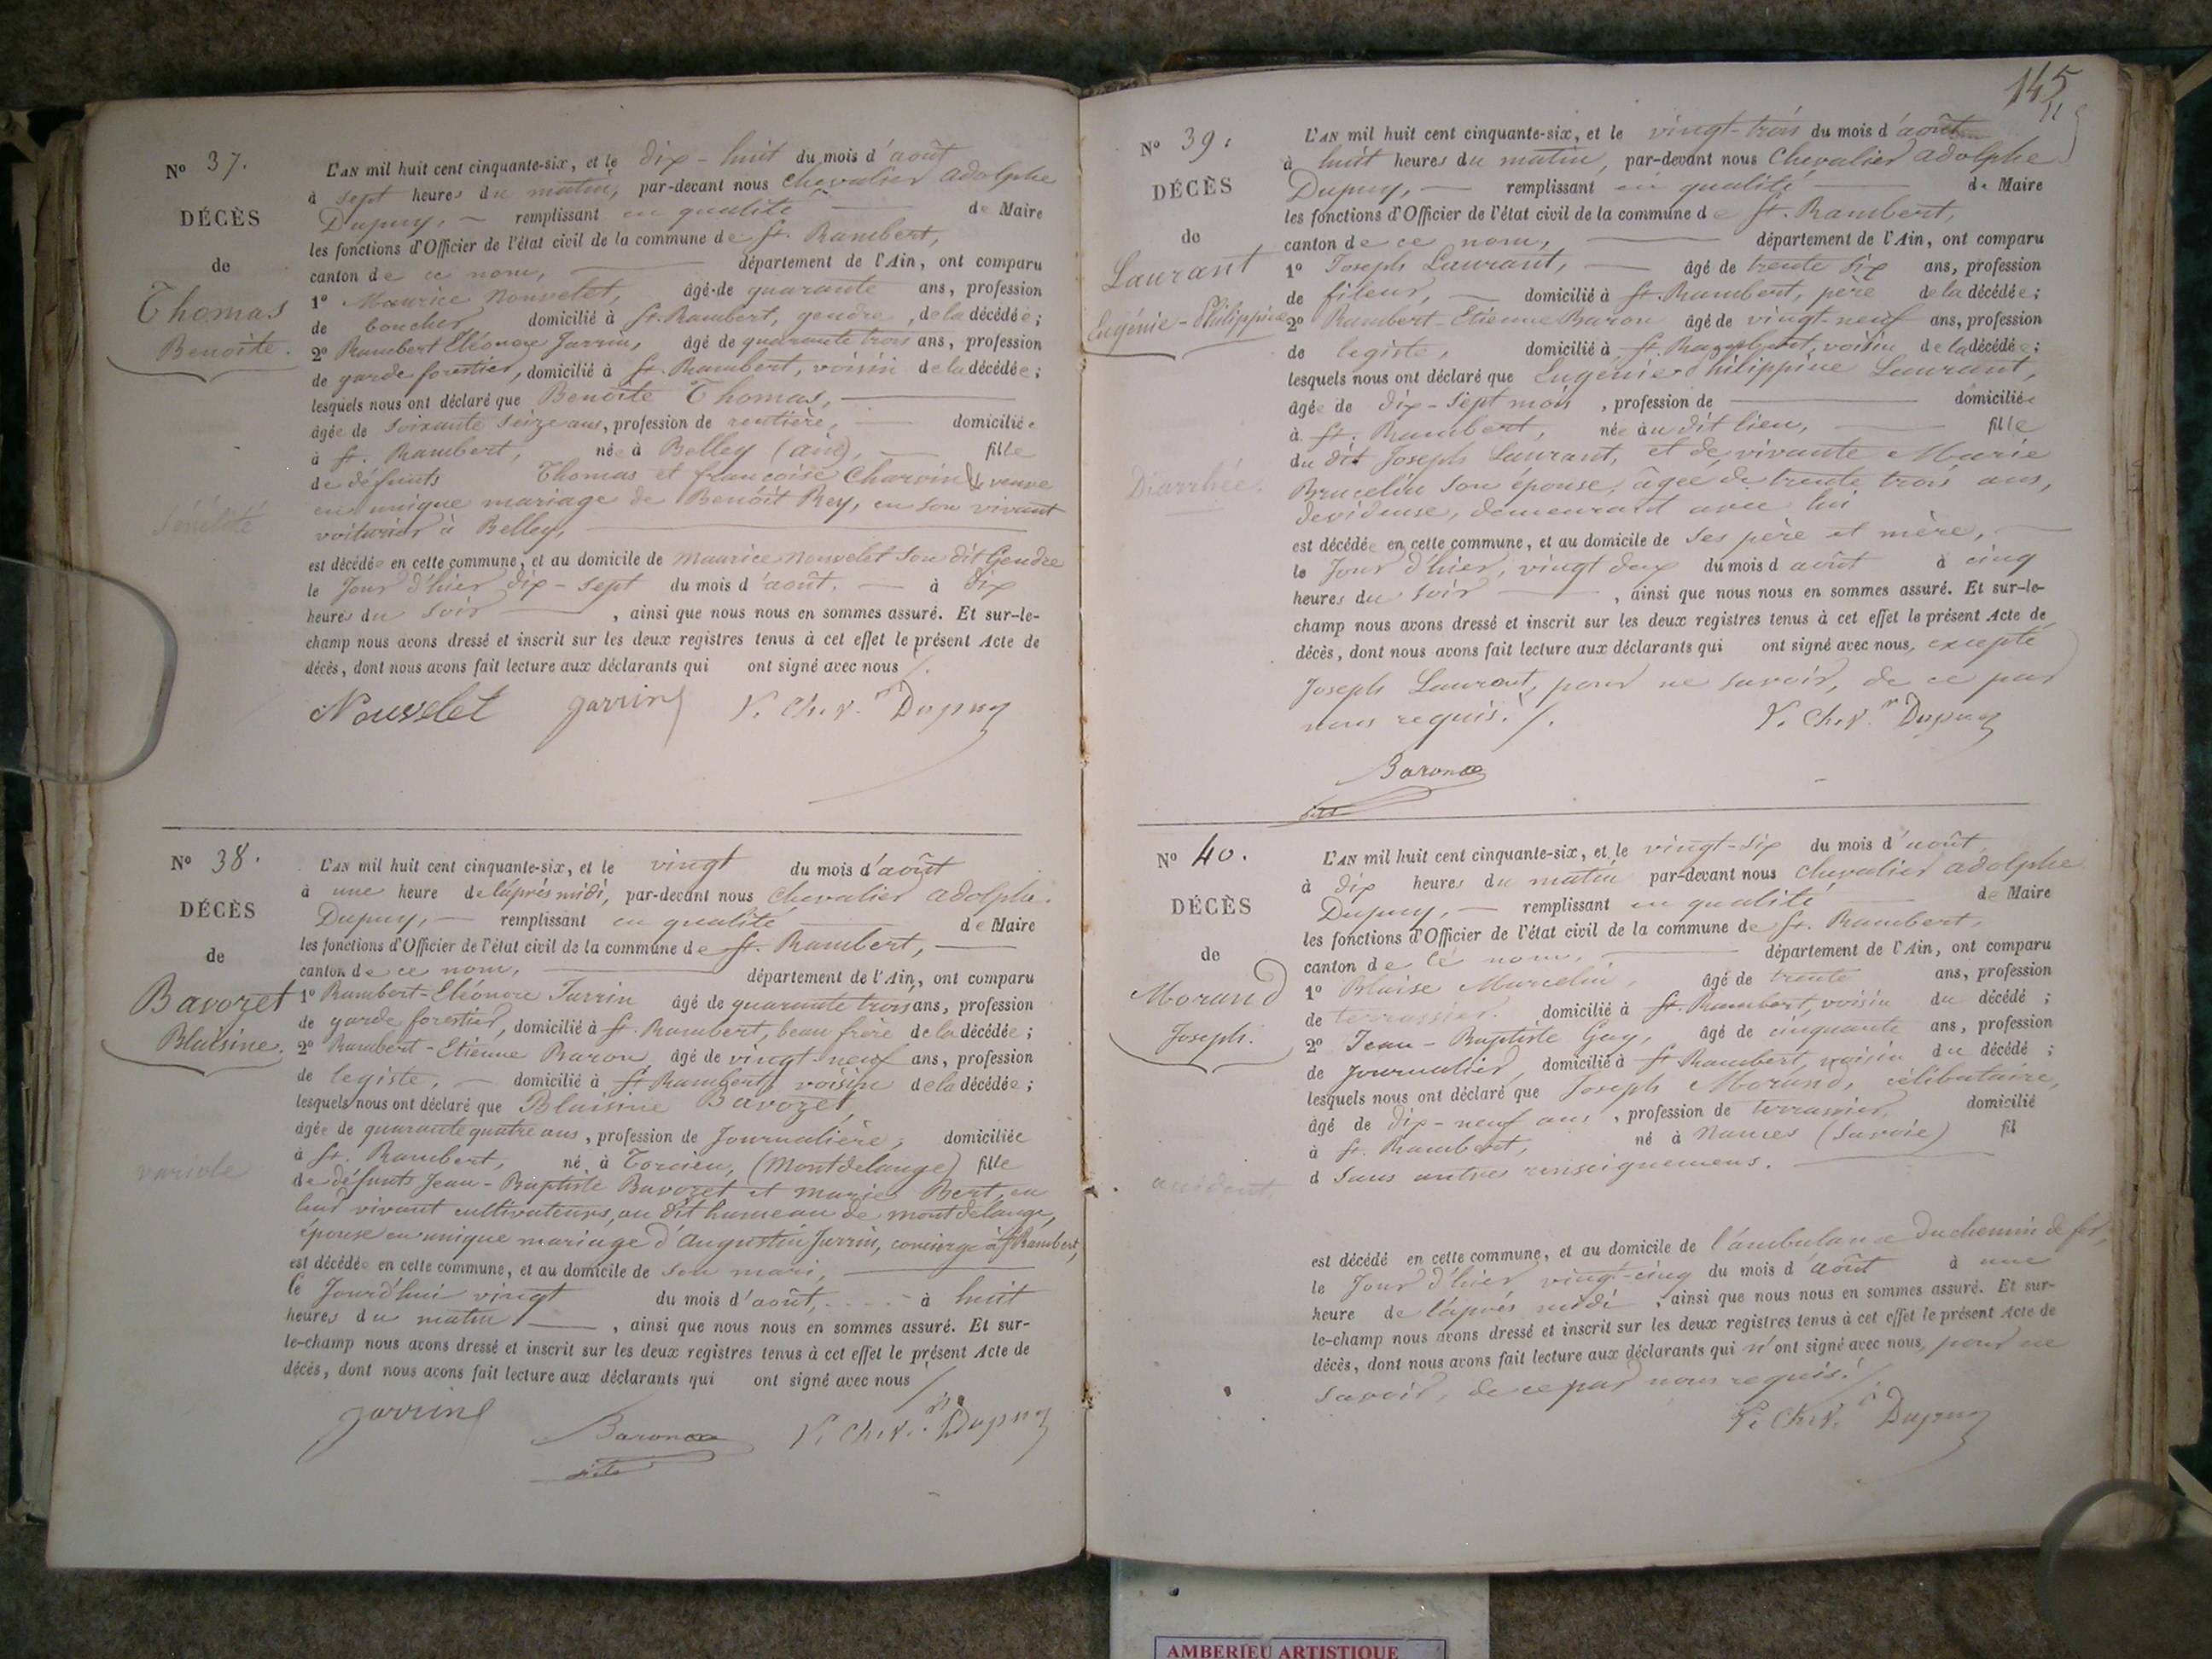 N° 37.
DÉCÈS
de
Thomas
Benoite.
Sénilité
L'AN mil huit cent cinquante-six, et le dix-huit du mois d'août
à sept heures du matin, par-devant nous Chevalier Adolphe
Dupuy, remplissant en qualité de Maire
les fonctions d'Officier de l'état civil de la commune de St. Rambert,
canton de ce nom, département de l'Ain, ont comparu
1° Maurice Nouvelet, âgé de quarante ans, profession
de boucher domicilié à St. Rambert, gendre, de la décédée;
2° Rambert Eléonore Jarrin, âgé de quarante trois ans, profession
de garde forestier, domicilié à St. Rambert, voisin de la décédée;
lesquels nous ont déclaré que Benoite Thomas,
âgée de soixante seize ans, profession de rentière, domiciliée
à St. Rambert, née à Belley (ain), fille
de défunts Thomas et françoise Charvin, veuve
en unique mariage de Benoît Rey, en son vivant
voiturier à Belley,
est décédée en cette commune, et au domicile de Maurice Nouvelet son dit Gendre
le Jour d'hier dix-sept du mois d'août. à dix
heures du soir, ainsi que nous nous en sommes assuré. Et sur-le-
champ nous avons dressé et inscrit sur les deux registres tenus à cet effet le présent Acte de
décès, dont nous avons fait lecture aux déclarants qui ont signé avec nous/.
Nouvelet Jarrin V. Chev.r Dupuy
N° 38.
DÉCÈS
de
Bavozet
Blaisine.
variole
L'AN mil huit cent cinquante-six, et le vingt du mois d'août
à une heure de l'après midi, par-devant nous Chevalier Adolphe
Dupuy, remplissant en qualité de Maire
les fonctions d'Officier de l'état civil de la commune de St. Rambert,
canton de ce nom, département de l'Ain, ont comparu
1° Rambert-Eléonore Jarrin âgé de quarante trois ans, profession
de garde forestier, domicilié à St. Rambert, beau frere de la décédée;
2° Rambert-Etienne Baron âgé de vingt-neuf ans, profession
de legiste, domicilié à St Rambert, voisin de la décédée;
lesquels nous ont déclaré que Blaisine Bavozet,
âgée de quarante quatre ans, profession de Journalière, domiciliée
à St. Rambert, né à Torcieu, (Montdelange) fille
de défunts Jean-Baptiste Bavozet et marie Bert, en
leur vivant cultivateurs, au dit hameau de montdelange,
épouse en unique mariage d'Augustin Jarrin, concierge à St Rambert,
est décédée en cette commune, et au domicile de son mari,
le Jourd'hui vingt du mois d'août, à huit
heures du matin, ainsi que nous nous en sommes assuré. Et sur-
le-champ nous avons dressé et inscrit sur les deux registres tenus à cet effet le présent Acte de
décès, dont nous avons fait lecture aux déclarants qui ont signé avec nous/.
Jarrin Baron V. Chev.r Dupuy
145
N° 39.
DÉCÈS
de
Laurant
Eugénie-Philippine
Diarrhée.
L'AN mil huit cent cinquante-six, et le vingt-trois du mois d'août
à huit heures du matin, par-devant nous Chevalier Adolphe
Dupuy, remplissant en qualité de Maire
les fonctions d'Officier de l'état civil de la commune de St. Rambert,
canton de ce nom, département de l'Ain, ont comparu
1° Joseph Laurant, âgé de trente six ans, profession
de fileur, domicilié à St. Rambert, père de la décédée;
2° Rambert-Etienne Baron âgé de vingt-neuf ans, profession
de legiste, domicilié à St. Rambert, voisin de la décédée;
lesquels nous ont déclaré que Eugénie Philippine Laurant,
âgée de dix-sept mois, profession de domiciliée
à St. Rambert, née au dit lieu, fille
du dit Joseph Laurant, et de vivante Marie
Brucelin son épouse, âgée de trente trois ans,
devideuse, demeurant avec lui
est décédée en cette commune, et au domicile de ses père et mère,
le Jour d'hier, vingt deux du mois d'août à cinq
heures du soir, ainsi que nous nous en sommes assuré. Et sur-le-
champ nous avons dressé et inscrit sur les deux registres tenus à cet effet le présent Acte de
décès, dont nous avons fait lecture aux déclarants qui ont signé avec nous, excepté
Joseph Laurant, pour ne savoir, de ce par
nous requis./.
V. Chev.r Dupuy
Baron
N° 40.
DÉCÈS
de
Morand
Joseph.
accident
L'AN mil huit cent cinquante-six, et le vingt-six du mois d'août
à dix heures du matin par-devant nous Chevalier Adolphe
Dupuy, remplissant en qualité de Maire
les fonctions d'Officier de l'état civil de la commune de St. Rambert,
canton de ce nom, département de l'Ain, ont comparu
1° Blaise Marcelin, âgé de trente ans, profession
de terrassier. domicilié à St. Rambert, voisin du décédé;
2° Jean-Baptiste Guy, âgé de cinquante ans, profession
de journalier, domicilié à St Rambert, voisin du décédé;
lesquels nous ont déclaré que Joseph Morand, célibataire,
âgé de dix-neuf ans, profession de terrassier, domicilié
à St. Rambert, né à Nances (Savoie) fil
d sans autres renseignemens.
est décédé en cette commune, et au domicile de l'ambulance du chemin de fer,
le Jour d'hier vingt-cinq du mois d'août à une
heure de l'après midi, ainsi que nous nous en sommes assuré. Et sur-
le-champ nous avons dressé et inscrit sur les deux registres tenus à cet effet le présent Acte de
décès, dont nous avons fait lecture aux déclarants qui n'ont signé avec nous, pour ne
savoir, de ce par nous requis./.
V. Chev.r Dupuy
AMBERIEU ARTISTIQUE